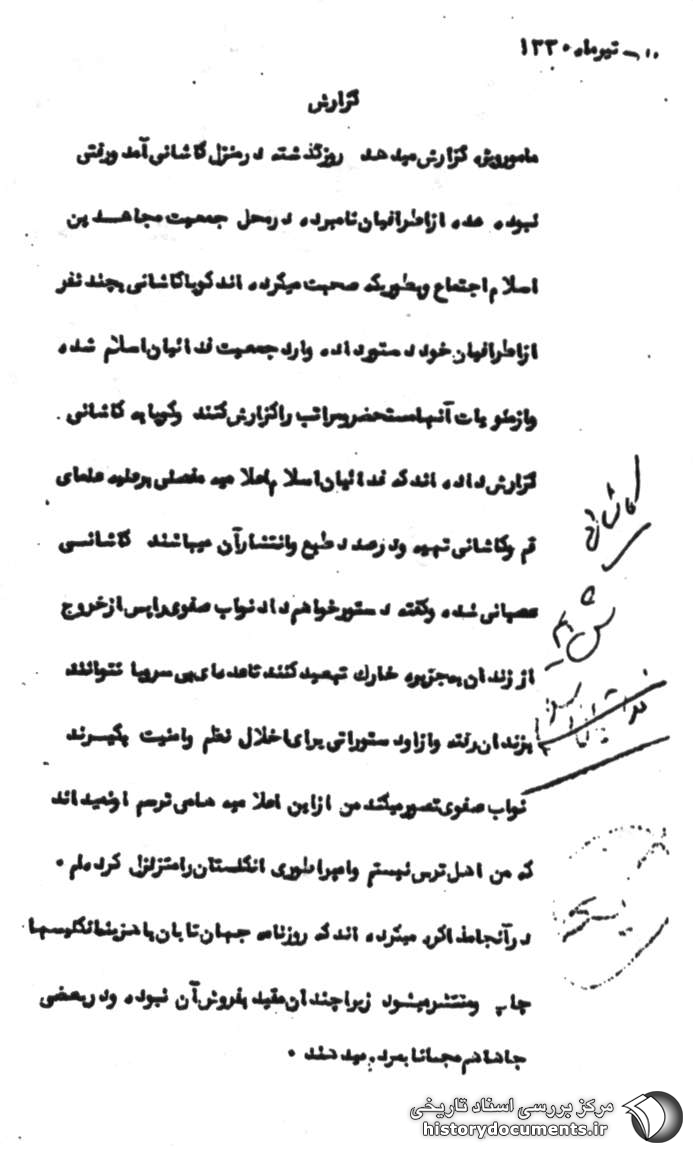 تیرماه ۱۳۳۰
گزارش
مامورویژه گزارش میدهد روزگذشته درمنزل کاشانی آمدورفتی
نبوده عده ازاطرافیان نامبرده درمحل جمعیت مجاهدین
اسلام اجتماع وبطوریکه صحبت میکرده اند گویاکاشانی بچند نفر
ازاطرافیان خود دستورداده وارد جمعیت فدائیان اسلام شده
وازمنویات آنهامستحضرومراتب راگزارش کنند وگویابه کاشانی
گزارش داده اندکه فدائیان اسلام اعلامیه مفصلی برعلیه علمای
قم وکاشانی تهیه ودرصدد طبع وانتشارآن میباشند کاشانی
عصبانی شده وگفته دستورخواهم داد نواب صفوی راپس ازخروج
از زندان بجزیره خارک تبعید کنند تاعده ای بی سروپا نتوانند
بزندان رفته وازاو دستوراتی برای اخلال نظم وامنیت بگیرند
نواب صفوی تصورمیکند من ازاین اعلامیه هامی ترسم اونمیداند
که من اهل ترس نیستم وامپراطوری انگلستان رامتزلزل کرده ام .
درآنجامذاکره میکرده اندکه روزنامه جهان تابان باهزینه انگلیسها
چاپ ومنتشرمیشود زیراچندان مقید بفروش آن نبوده ودربعضی
جاهاهم مجانابمردم میدهند .
کاشانی
فدائیان اسلام
مرکز بررسی اسناد تاریخی
historydocuments.ir